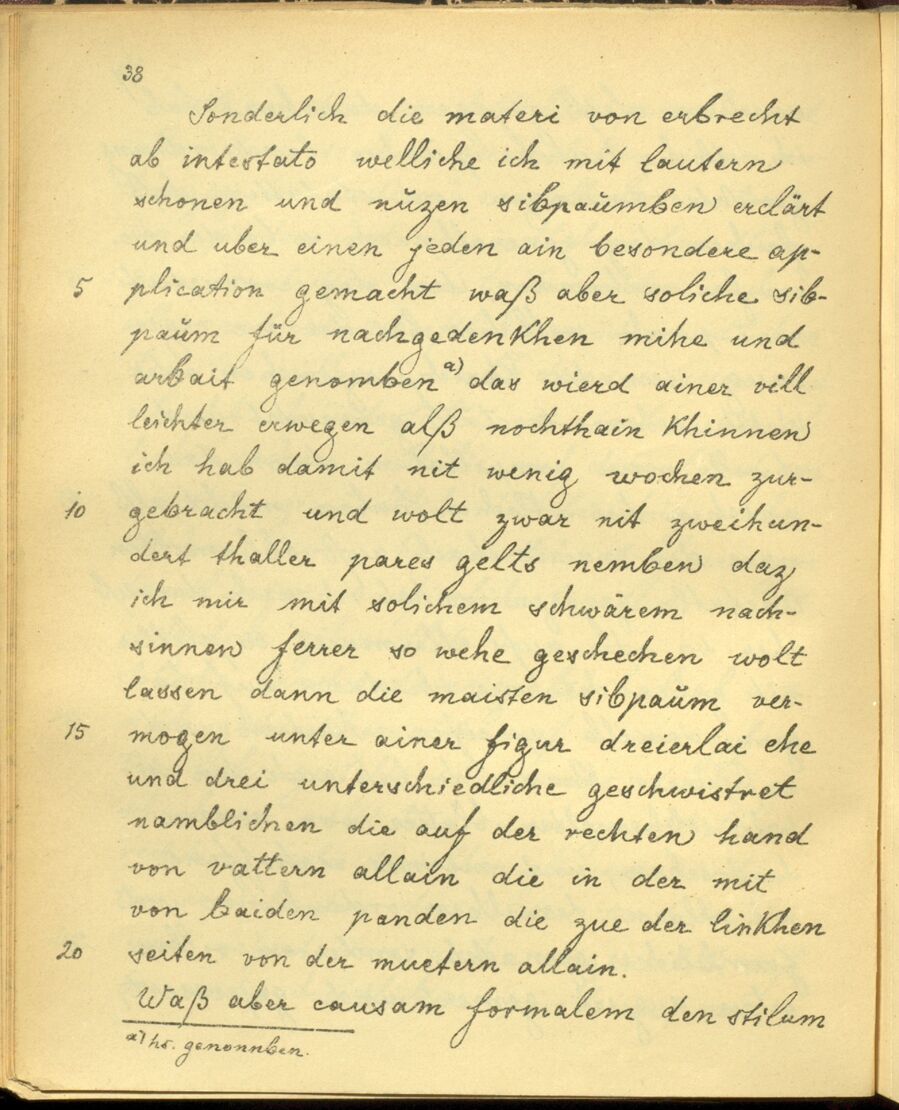 38
Sonderlich die materi von erbrecht
ab intestato welliche ich mit lautern
schonen und nŭzen sibpaŭmben erclärt
und uber einen jeden ain besondere ap-
5 plication gemacht waß aber soliche sib-
paŭm für nachgedenkhen mihe und
arbait genomben a) das wierd ainer vill
leichter erwegen alß nochthain khinnen
ich hab damit nit wenig wochen zur-
10 gebracht und wolt zwar nit zweihun-
dert thaller pares gelts nemben daz
ich mir mit solichem schwärem nach-
sinnen ferrer so wehe geschechen wolt
lassen dann die maisten sibpaŭm ver-
15 mogen unter ainer figur dreierlai ehe
und drei unterschiedliche geschwistret
namblichen die auf der rechten hand
von vattern allain die in der mit
von baiden panden die zue der linkhen
20 seiten von der muetern allain.
Waß aber causam formalem den stilum
a) hs. genonnben.